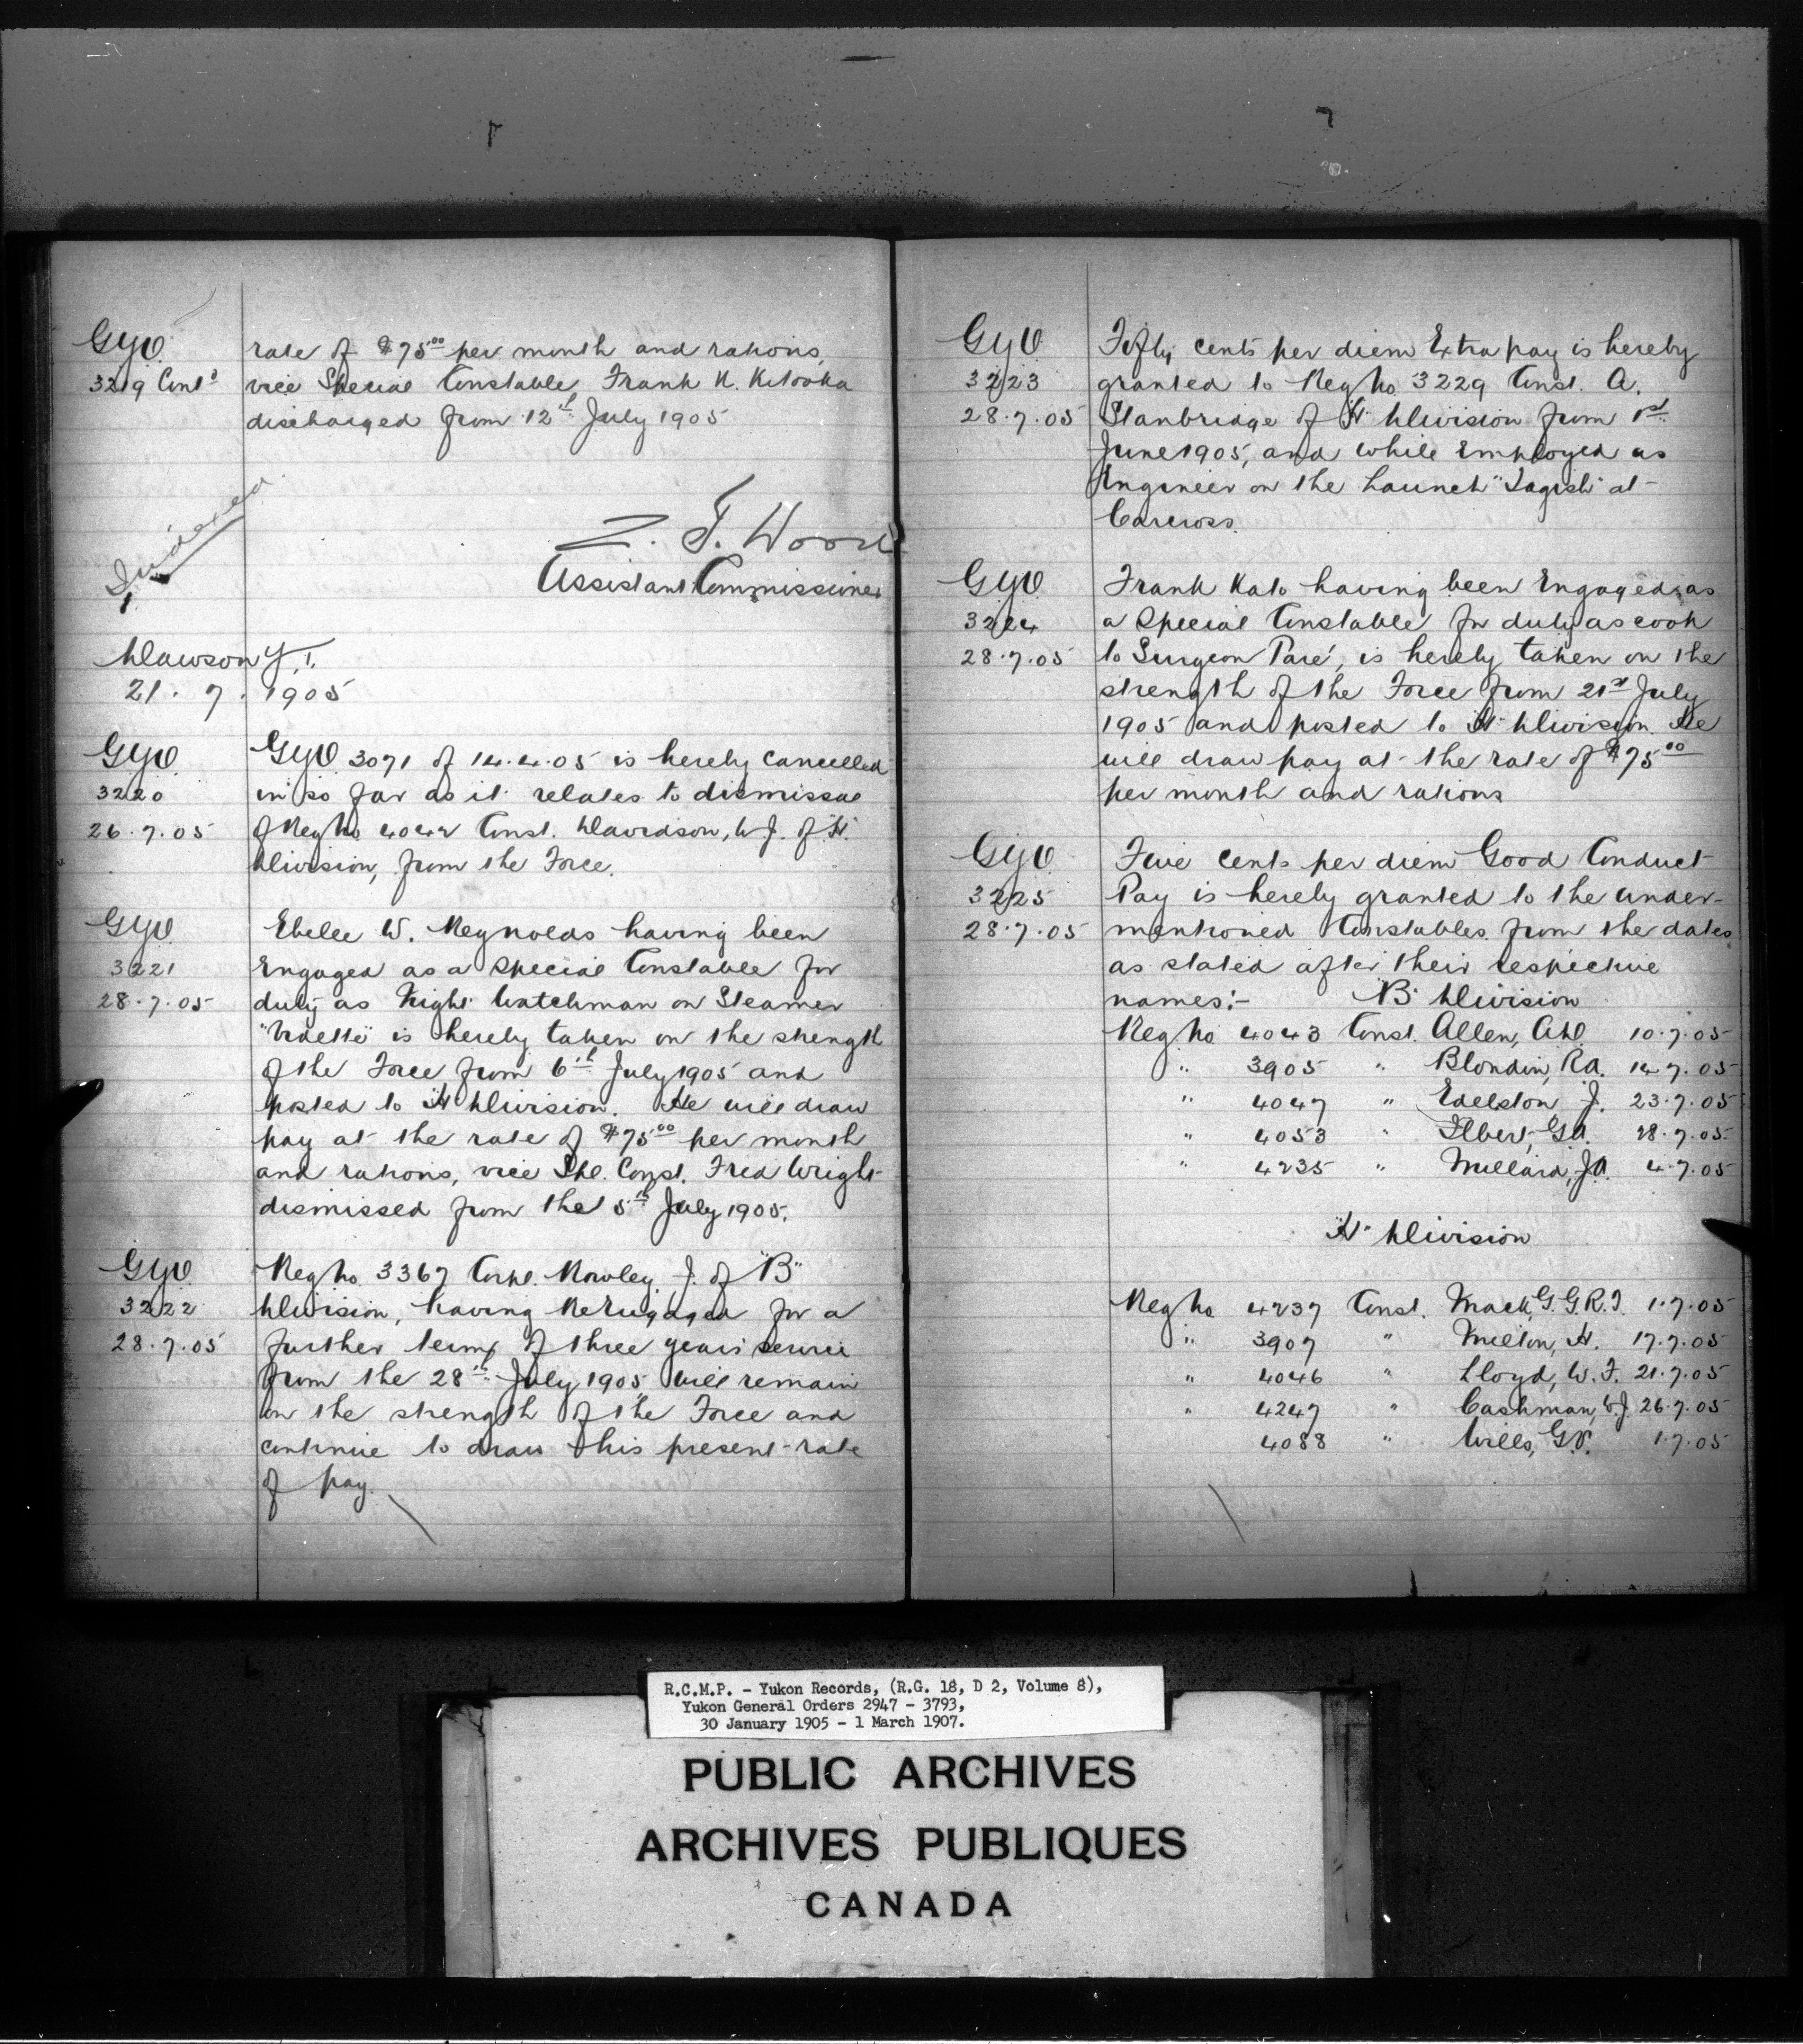 GYO
3219 Cont'd
rate of $75.00 per month and rations,
vice Special Constable Frank K. Kitooka
discharged from 12th July 1905
Indexed
Z. T. Wood
Assistant Commissioner
Dawson Y.T.
21. 7. 1905
GYO
3220
26.7.05
GYO 3071 of 14.4.05 is hereby cancelled
in so far as it relates to dismissal
of Reg No 4042 Const. Davidson, W J. of "H"
Division, from the Force.
GYO
3221
28.7.05
W. Reynolds having been
Engaged as a Special Constable for
duty as Night Watchman on Steamer
"Vidette" is hereby taken on the strength
of the Force from 6th July 1905 and
posted to "H" Division. He will draw
pay at the rate of $75.00 per month
and rations, vice Spl. Const. Fred Wright
dismissed from the 5th July 1905.
GYO
3222
28.7.05
Reg No. 3367 Corpl. Rowley J. of "B"
Division, having Reengaged for a
further term of three years' service
from the 28th July 1905, will remain
on the strength of the Force and
continue to draw his present rate
of pay.
GYO
3223
28.7.05
Fifty cents per diem Extra pay is hereby
granted to Reg No. 3229 Const. A.
Stanbridge of "H" Division from 1st
June 1905, and while Employed as
Engineer on the Launch "Tagish" at
Carcross.
GYO
3224
28.7.05
Frank Kato having been Engaged as
a Special Constable for duty as cook
to Surgeon Paré, is hereby taken on the
strength of the Force from 21st July
1905 and posted to "H" Division. He
will draw pay at the rate of $75.00
per month and rations
GYO
3225
28.7.05
Five cents per diem Good Conduct
Pay is hereby granted to the under-
mentioned Constables from the dates
as stated after their respective
names:- "B" Division
Reg No 4043 Const. Allen, 10.7.05
" 3905 " Blondin, R.A. 14.7.05
" 4047 " Edelston J. 23.7.05
" 4053 " Ilbert, 28.7.05
" 4235 " Millard, 4.7.05
"H" Division
Reg No 4237 Const. Mack, G.G.R.J. 1.7.05
" 3907 " Milton, H. 17.7.05
" 4046 " Lloyd, W. F. 21.7.05
" 4247 " Cashman, W J. 26.7.05
4088 " Wills, 1.7.05
R.C.M.P. - Yukon Records, (R.G. 18, D 2, Volume 8),
Yukon General Orders 2947 - 3793,
30 January 1905 - 1 March 1907.
PUBLIC ARCHIVES
ARCHIVES PUBLIQUES
CANADA